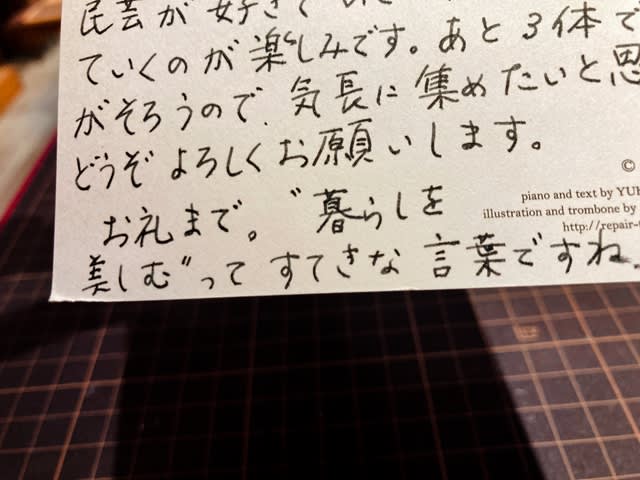 民芸が好きで
ていくのが楽しみです。あと3体で
がそろうので、気長に集めたいと思
どうぞよろしくお願いします。
お礼まで。〝暮らしを
美しむ〟って すてきな 言葉ですね。
©
piano and text by YUK
illustration and trombone by
http://repair-